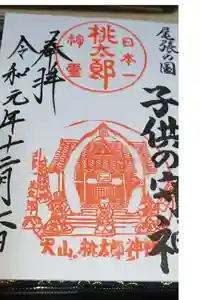 尾張の国
子供の守神
日本一
桃太郎
神霊
奉拝
令和元年十二月二日
犬山 桃太郎神社